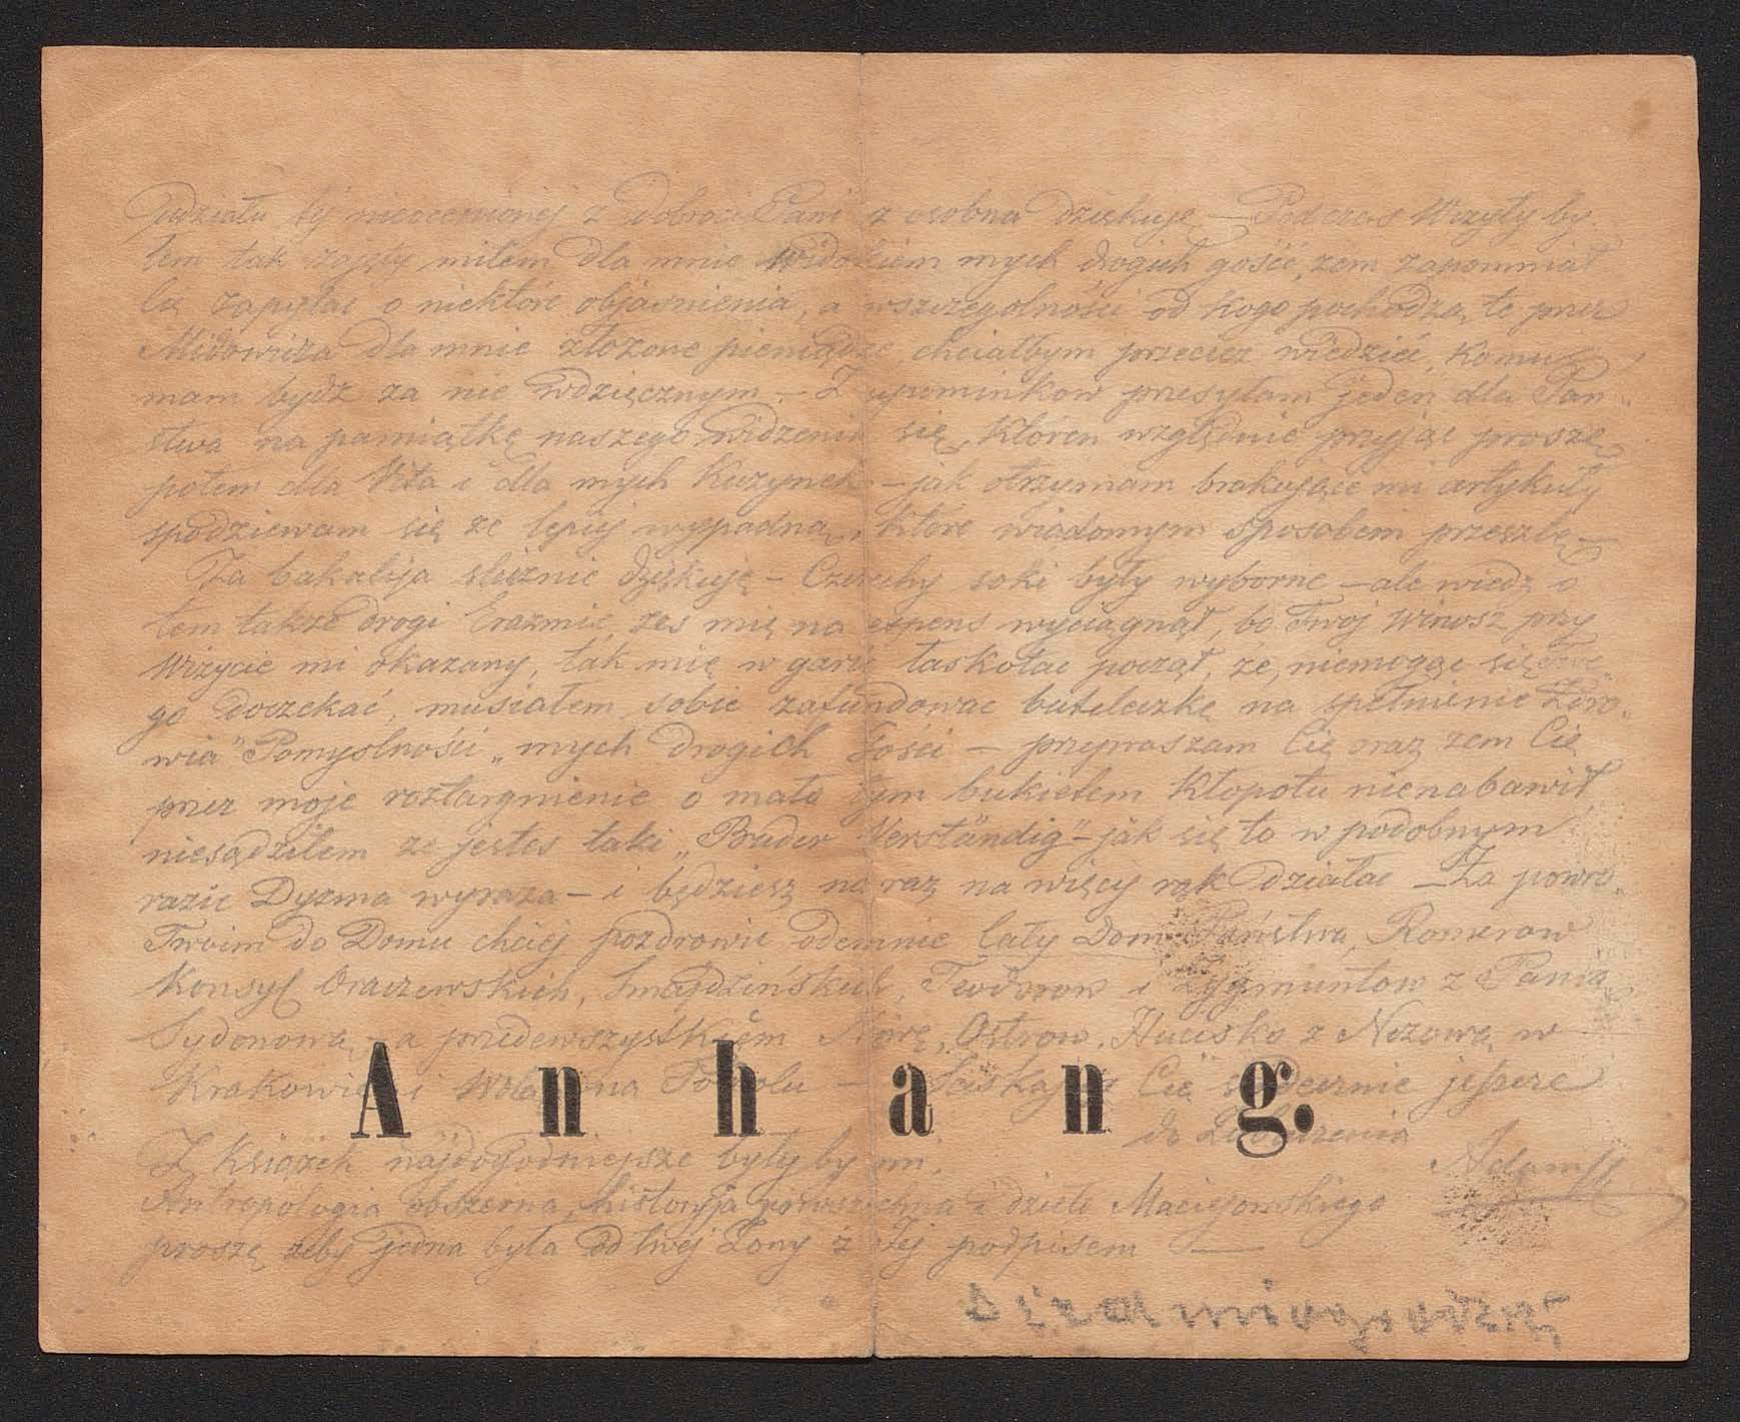 Udziału tej nieocenionej z Dobroci Pani z osobna dziękuję — Podczas Wizyty by-
łem tak zajęty miłem dla mnie widokiem mych drogich gości, żem zapomniał
zapytać o niektóre objaśnienia, a wszczególności od kogo pochodzą te przez
dla mnie złożone pieniądze, chciałbym przecież wiedzieć, komu
mam bydź za nie wdzięcznym — Z upominkow przesyłam jeden dla Pań-
stwa na pamiątkę naszego widzenia się, któren względnie przyjąć proszę
potem dla Wita i dla mych Kuzynek — jak otrzymam brakujące mi artykuły
spodziewam się że lepiej wypadną, które wiadomym sposobem przeszlę —
Za bakalija ślicznie dziękuję — soki były wyborne — ale wiedz o
tem także drogi Erazmie, żeś mię na expens wyciągnął, bo Twój przy
Wizycie mi okazany, tak mię w gardle łaskotać począł, że, niemogąc się
go doczekać, musiałem sobie zafundować buteleczkę na spełnienie Zdro-
wia" Pomyslności „mych drogich Gości — przepraszam Cię oraz żem Cię
przez moje roztargnienie o mało tym bukietem kłopotu nienabawił,
niesądziłem że jestes taki „Bruder Verständig" — jak się to w podobnym
razie Dyzma wyraża — i będziesz na raz na więcy rąk działać — Za powro-
Twoim do Domu chciej pozdrowić odemnie Cały Dom Państwa Romerow
Konsyl Oraczewskich, Teodorow i Zygmuntow z Panią
Sydonową, a przedewszystkiem Ostrow, Hucisko z w
Krakowie i na — Ściskając Cię serdecznie jeszcze
Anhang.
do Zobaczenia
Z Książek najdogodniejsze były by mi,
Adam
Antropologia obszerna, historyja powszechna i dzieło Maciejowskiego
proszę żeby jedna była od twej Żony z Jej podpisem —